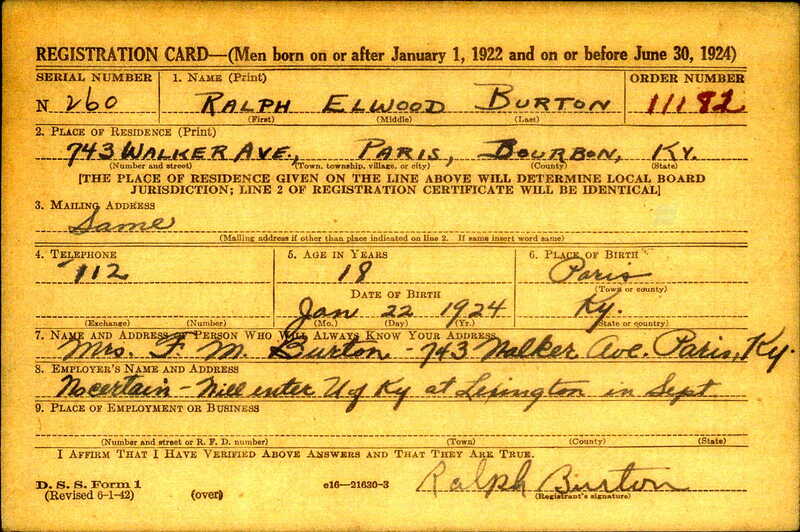 REGISTRATION CARD—(Men born on or after January 1, 1922 and on or before June 30, 1924)
SERIAL NUMBER 1. NAME (Print) ORDER NUMBER
N 260 RALPH ELWOOD BURTON 11182
(First) (Middle) (Last)
2. PLACE OF RESIDENCE (Print)
743 WALKER AVE., PARIS, BOURBON, KY.
(Number and street) (Town, township, village, or city) (County) (State)
[THE PLACE OF RESIDENCE GIVEN ON THE LINE ABOVE WILL DETERMINE LOCAL BOARD
JURISDICTION; LINE 2 OF REGISTRATION CERTIFICATE WILL BE IDENTICAL]
3. MAILING ADDRESS
Same
(Mailing address if other than place indicated on line 2. If same insert word same)
4. TELEPHONE 5. AGE IN YEARS 6. PLACE OF BIRTH
712 18 Paris
(Town or county)
DATE OF BIRTH
Jan 22 1924 Ky.
(Exchange) (Number) (Mo.) (Day) (Yr.) (State or country)
7. NAME AND ADDRESS OF PERSON WHO WILL ALWAYS KNOW YOUR ADDRESS
Mrs. F. M. Burton - 743 Walker Ave. Paris, Ky.
8. EMPLOYER'S NAME AND ADDRESS
- Will enter U of Ky at Lexington in Sept
9. PLACE OF EMPLOYMENT OR BUSINESS
(Number and street or R. F. D. number) (Town) (County) (State)
I AFFIRM THAT I HAVE VERIFIED ABOVE ANSWERS AND THAT THEY ARE TRUE.
D. S. S. Form 1
(Revised 6-1-42) (over) e16—21630-3 Ralph Burton
(Registrant's signature)